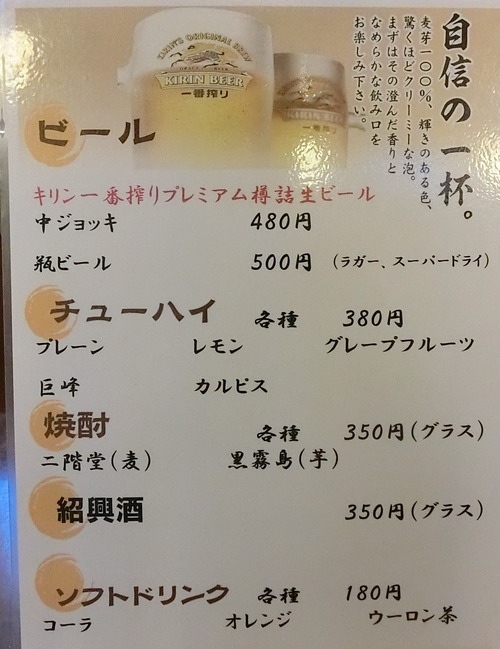 自信の一杯。
麦芽一〇〇%、輝きのある色、
驚くほどクリーミーな泡。
まずはその澄んだ香りと
なめらかな飲み口を
お楽しみ下さい。
KIRIN'S ORIGINAL BREW
KIRIN BEER
一番搾り
KIRIN BEER
一番搾り
ビール
キリン一番搾りプレミアム樽詰生ビール
中ジョッキ 480円
瓶ビール 500円 (ラガー、スーパードライ)
チューハイ 各種 380円
プレーン レモン グレープフルーツ
巨峰 カルピス
焼酎 各種 350円(グラス)
二階堂(麦) 黒霧島(芋)
紹興酒 350円(グラス)
ソフトドリンク 各種 180円
コーラ オレンジ ウーロン茶